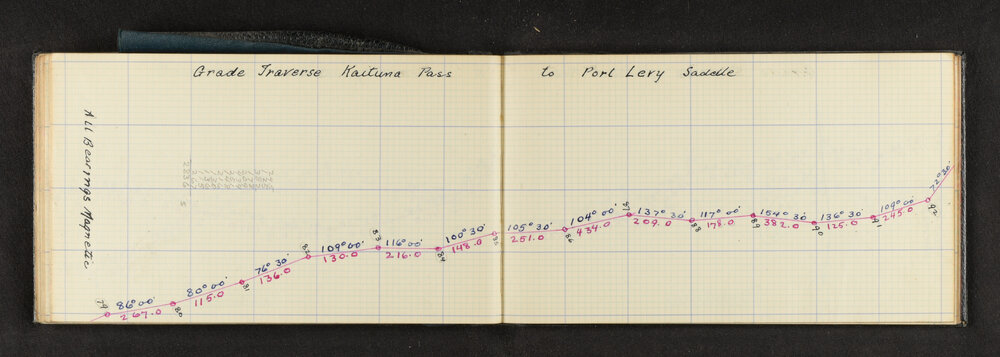 Grade Traverse Kaituna Pass to Port Levy Saddle
All Bearings Magnetic.
79 86° 00' 267.0
80 80° 00' 115.0
81 76° 30' 136.0
82 109° 00' 130.0
83 116° 00' 216.0
84 100° 30' 148.0
85 105° 30' 251.0
86 104° 00' 434.0
87 137° 30' 209.0
88 117° 00' 178.0
89 154° 30' 382.0
90 136° 30' 125.0
91 109° 00' 245.0
92 72° 30'